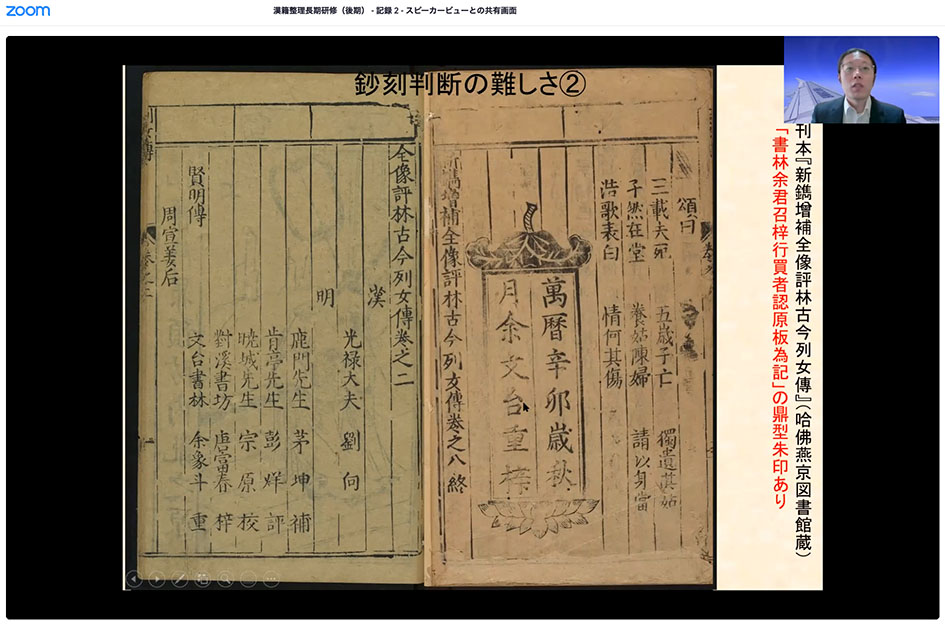 zoom
漢籍整理長期研修（後期） - 記録 2 - スピーカービューとの共有画面
鈔刻判断の難しさ②
刊本『新鐫增補全像評林古今列女傳』（哈佛燕京図書館蔵）
「書林余君召梓行買者認原板為記」の鼎型朱印あり
頌曰
三載夫死 五歳子亡 獨遺其姑
孑然在堂 養姑陳婦 請以身當
浩歌表曰 情何其傷
萬暦辛卯歳秋
月余文台重梓
增補全像評林古今列女傳卷之八終
全像評林古今列女傳卷之二
漢 光禄大夫 劉向
明 鹿門先生 茅坤 補
肯亭先生 彭烊 評
曉城先生 宗原 校
對溪書坊 唐富春 梓
文台書林 余象斗 重
賢明傳
周宣姜后